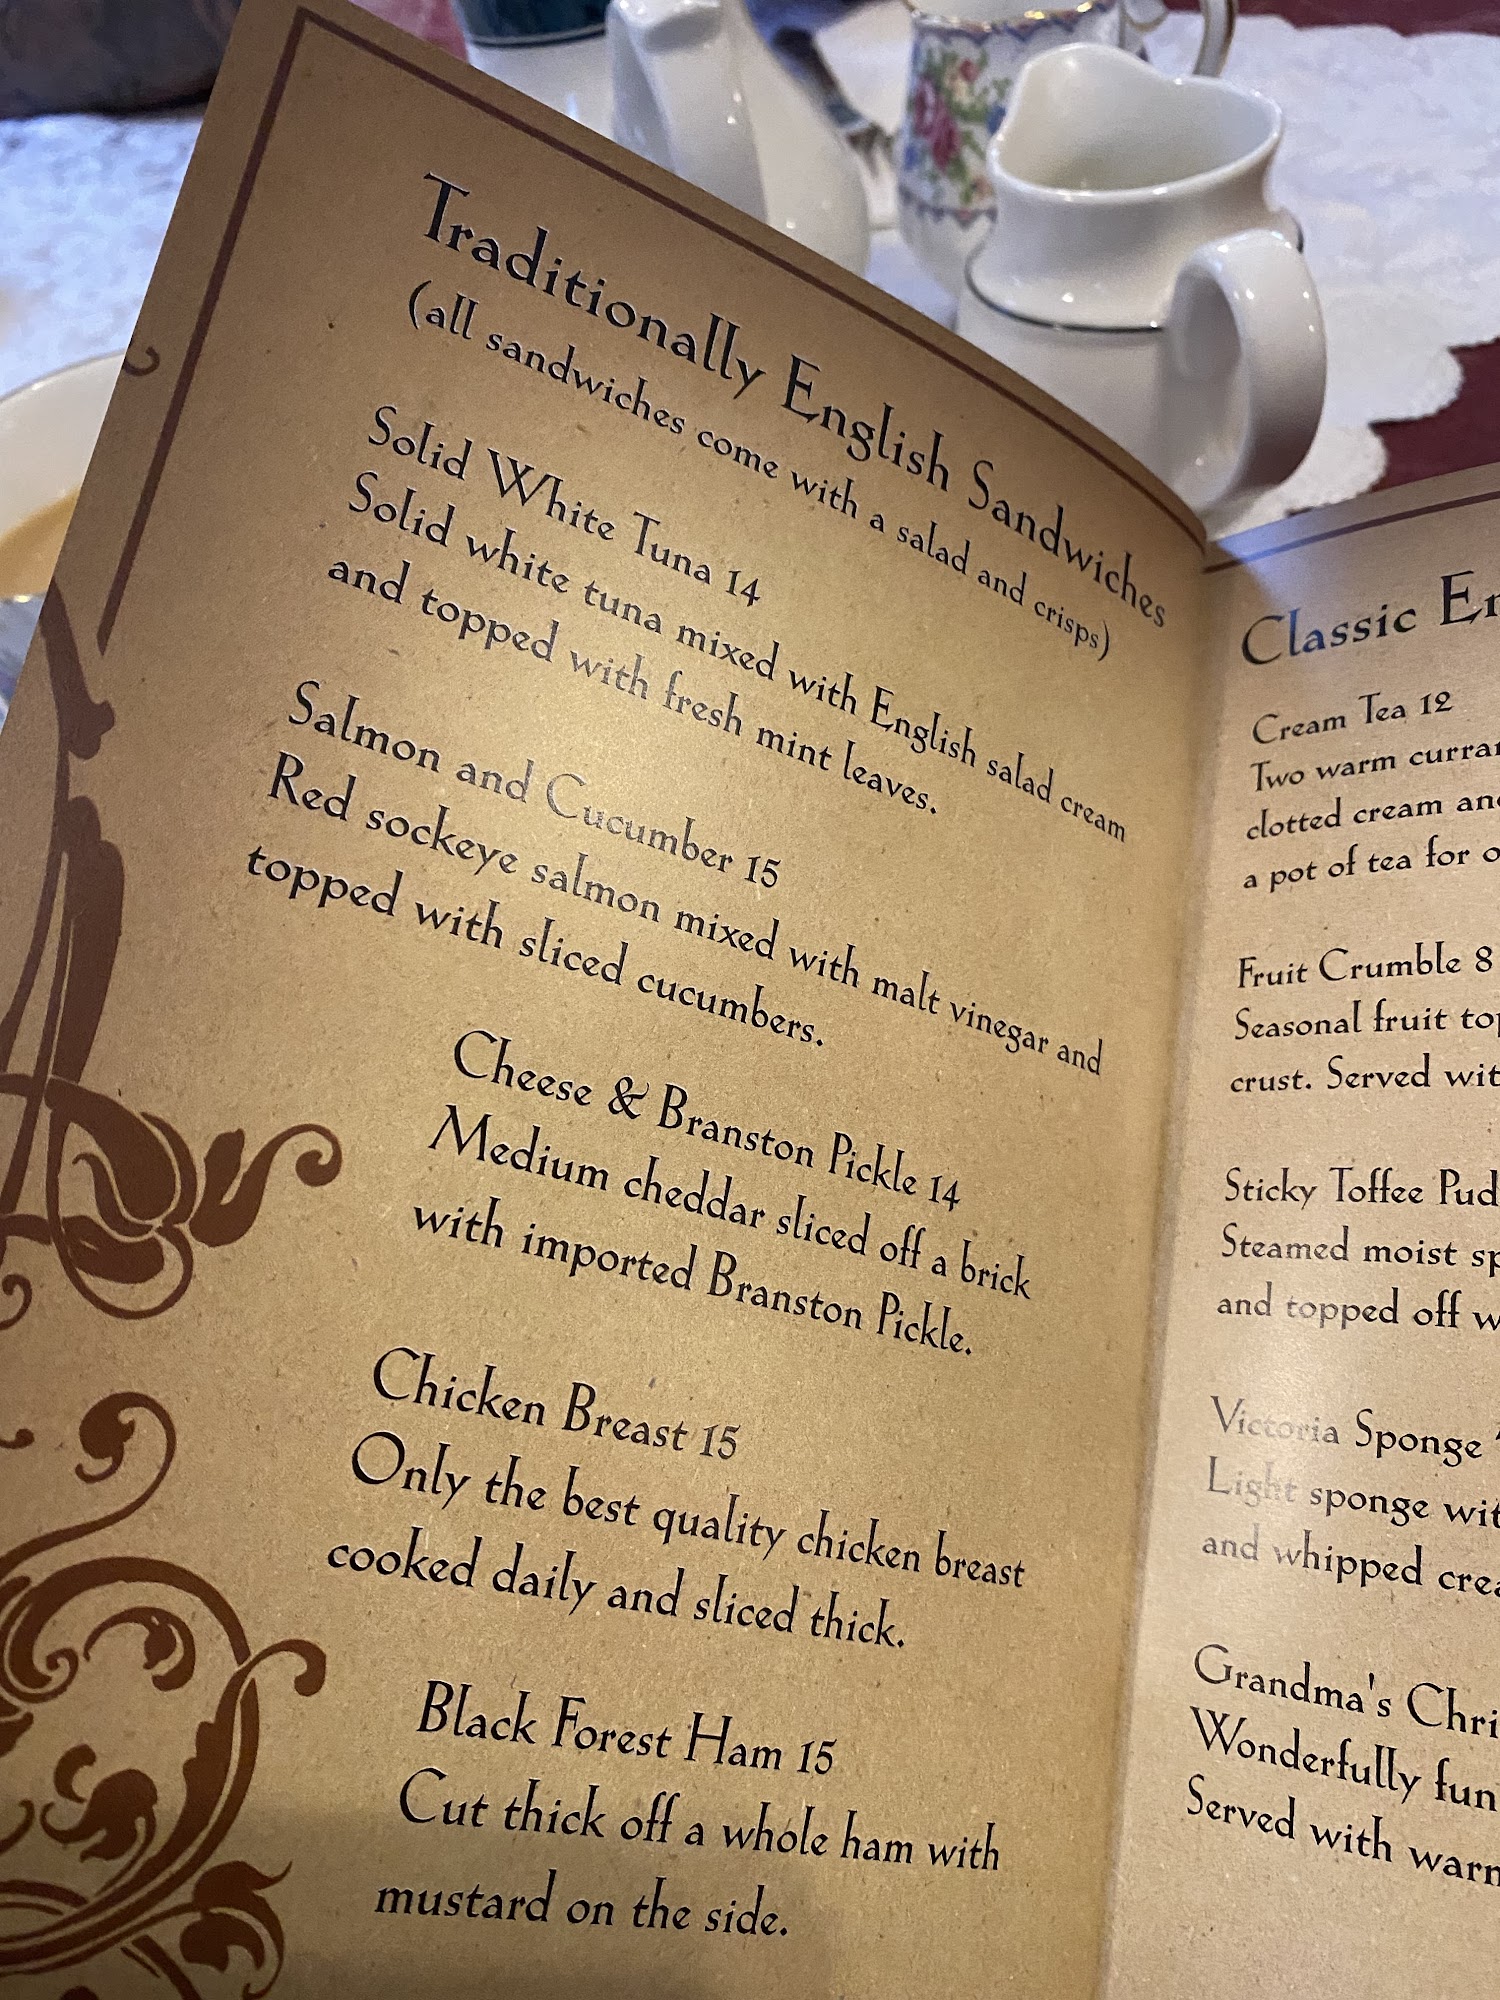 Traditionally English Sandwiches
(all sandwiches come with a salad and crisps)
Solid White Tuna 14
Solid white tuna mixed with English salad cream
and topped with fresh mint leaves.
Salmon and Cucumber 15
Red sockeye salmon mixed with malt vinegar and
topped with sliced cucumbers.
Cheese & Branston Pickle 14
Medium cheddar sliced off a brick
with imported Branston Pickle.
Chicken Breast 15
Only the best quality chicken breast
cooked daily and sliced thick.
Black Forest Ham 15
Cut thick off a whole ham with
mustard on the side.
Classic
Cream Tea 12
Two warm
clotted cream
a pot of tea for
Fruit Crumble 8
Seasonal fruit
crust. Served
Sticky Toffee
Steamed moist
and topped off
Victoria Sponge
Light sponge
and whipped
Grandma's
Wonderfully
Served with